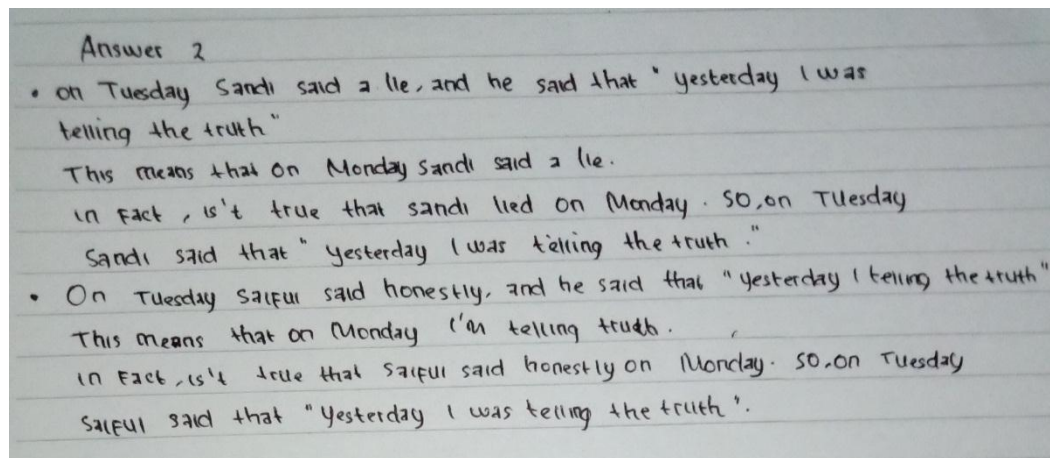 Answer 2
• on Tuesday Sandi said a lie, and he said that "yesterday I was
telling the truth"
This means that on Monday Sandi said a lie.
in fact, is't true that sandi lied on Monday. SO, on Tuesday
Sandi said that "yesterday I was telling the truth."
• On Tuesday Saiful said honestly, and he said that "yesterday I telling the truth"
This means that on Monday I'm telling truth.
in Fact, is't true that Saiful said honestly on Monday. SO, on Tuesday
Saiful said that "Yesterday I was telling the truth".